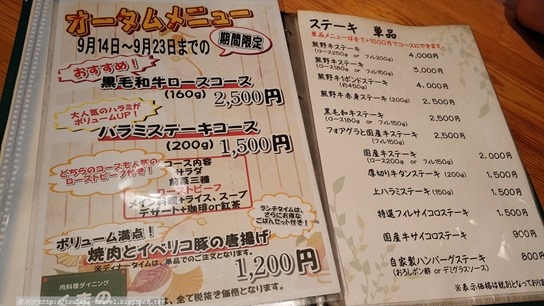 オータムメニュー
9月14日～9月23日までの
期間限定
おすすめ!
黒毛和牛ロースコース
(160g) 2,500円
大人気のハラミが
ボリュームUP!
ハラミステーキコース
(200g) 1,500円
どちらのコースも人気の
ローストビーフ付き!
コース内容
サラダ
前菜三種
ローストビーフ
メイン料理+ライス、スープ
デザート+珈琲or紅茶
ランチタイムは、
さらにお得な
ごはんセット付き!
ボリューム満点!
焼肉とイベリコ豚の唐揚げ
※ディナータイムは、単品でのご注文となります。
1,200円
肉料理ダイニング
全て税抜き価格となります。
ステーキ 単品
単品メニューは全て+1500円でコースにできます。
熊野牛ステーキ
(ロース250g or フィレ200g) 4,000円
熊野牛ステーキ
(ロース180g or フィレ150g) 3,000円
熊野牛1ポンドステーキ
(約450g) 4,000円
熊野牛赤身ステーキ(200g) 2,500円
黒毛和牛ステーキ
(ロース180g or フィレ150g) 2,500円
フォアグラと国産牛ステーキ 2,500円
国産牛ステーキ
(ロース200g or フィレ150g) 2,000円
厚切り牛タンステーキ 1,500円
上ハラミステーキ(150g) 1,500円
特選フィレサイコロステーキ 1,500円
国産牛サイコロステーキ 900円
自家製ハンバーグステーキ 900円
(おろしポン酢 or デミグラスソース)
※表示価格は税別となって